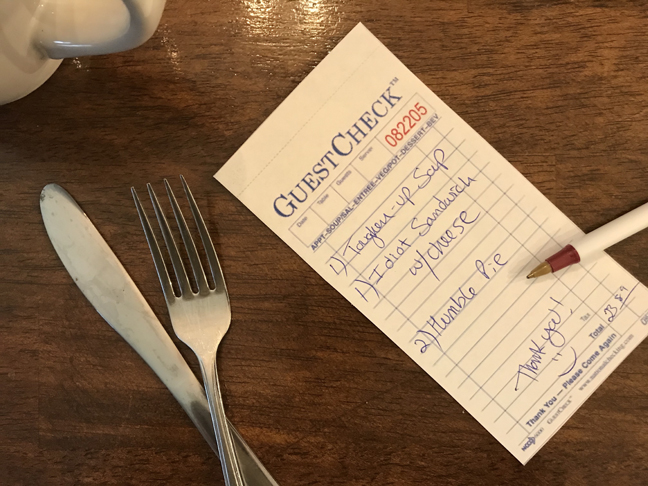 GUESTCHECK™
Date Table Guests Server 082205
APPT-SOUP/SAL-ENTREE-VEG/POT-DESSERT-BEV
1) Toughen-up Soup
1) Idiot Sandwich
w/ cheese
2) Humble Pie
Thank you!
Tax
Total 23.89
Thank You — Please Come Again